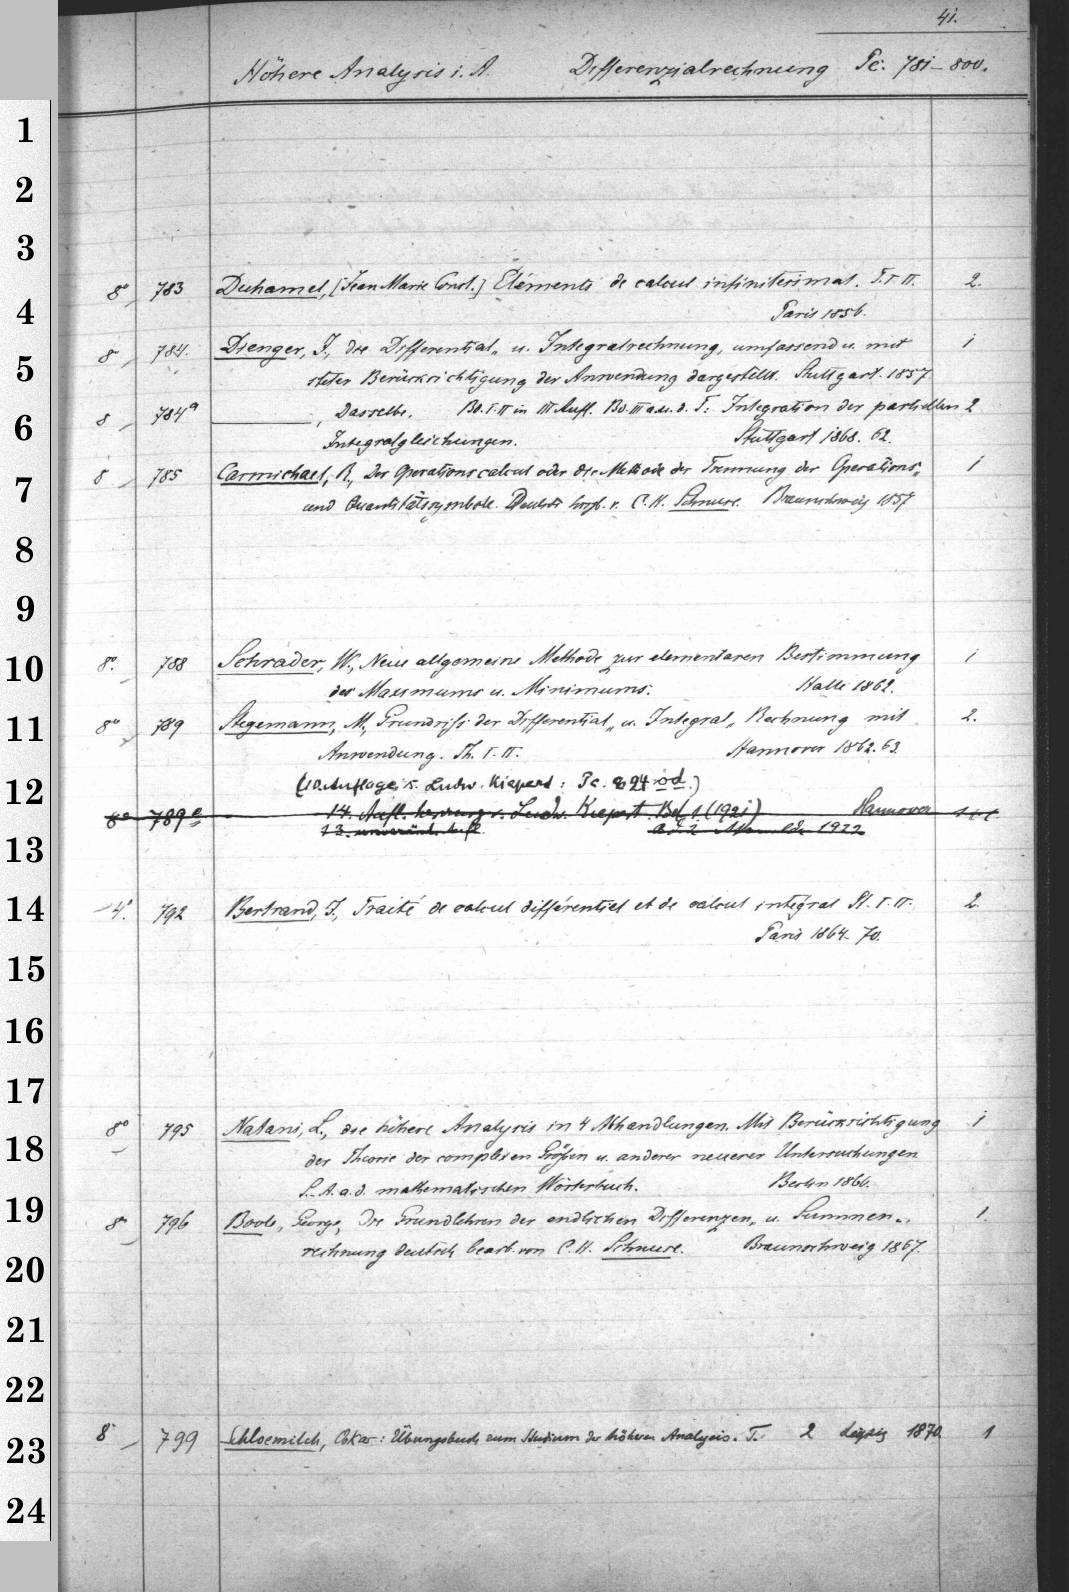 41.
Höhere Analysis i. A. Differenzialrechnung Pc. 781–800.
1
2
3
8° 783 Duhamel, [Jean Marie Const.] Eléments de calcul infinitésimal. T. I II. 2.
4
Paris 1856.
8 784. Dienger, J., die Differential- u. Integralrechnung, umfassend u. mit 1
5
steter Berücksichtigung der Anwendung dargestellt. Stuttgart. 1857
8 784a ———, Dasselbe. Bd. I. II in III Aufl. Bd. III a. u. d. T: Integration der partiellen 2
6
Integralgleichungen. Stuttgart 1868. 62.
8 785 Carmichael, R., Der Operationscalcul oder die Methode der Trennung der Operations-, 1
7
und Quantitätssymbole. Deutsch hrsg. v. C. H. Schnuse. Braunschweig 1857
8
9
8°. 788 Schrader, W., Neue allgemeine Methode zur elementaren Bestimmung 1
10
des Maximums u. Minimums. Halle 1862.
8° 789 Stegemann, M., Grundriss der Differential- u. Integral- Rechnung mit 2.
11
Anwendung. Th. I. II. Hannover 1862. 63
(10. Auflage v. Ludw. Kiepert: Pc. 824 od.)
12
8° 789e 14. Aufl. v. Ludw. Kiepert. Bd. 1 (1921) Hannover
13. unveränd. Aufl. 1922
13
4°. 792 Bertrand, J., Traité de calcul différentiel et de calcul intégral Pt. I. II. 2.
14
Paris 1864–70.
15
16
17
8° 795 Natani, L., die höhere Analysis in 4 Abhandlungen. Mit Berücksichtigung 1
18
der Theorie der complexen Größen u. anderer neuerer Untersuchungen
S.-A. a. d. mathematischen Wörterbuch. Berlin 1866.
8° 796 Boole, George, Die Grundlehren der endlichen Differenzen- u. Summen- 1.
19
rechnung deutsch bearb. von C. H. Schnuse. Braunschweig 1867.
20
21
22
8° 799 Schloemilch, Oskar: Übungsbuch zum Studium der höheren Analysis. T. 2 Leipzig 1870. 1
23
24